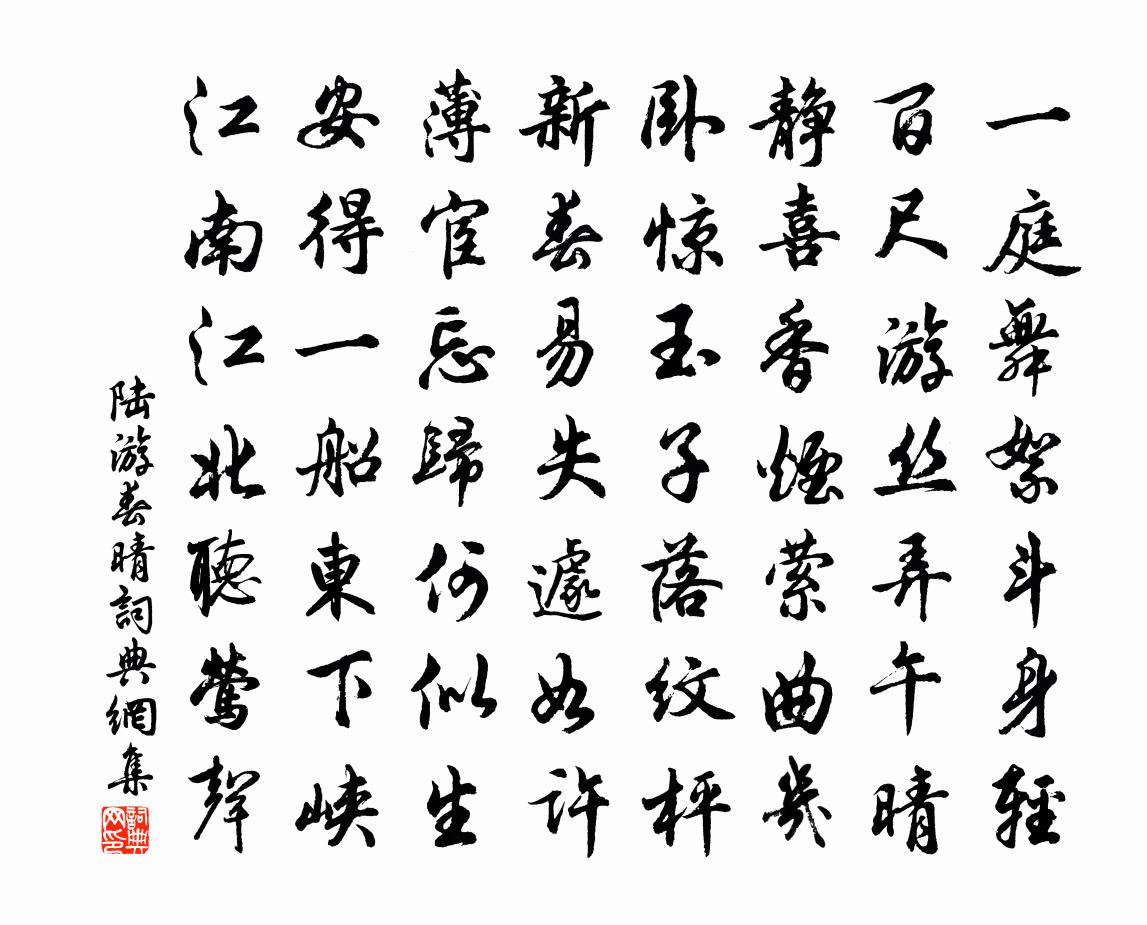 一庭舞絮斗身輕
百尺游丝弄午晴
静喜香煙萦曲几
卧惊玉子落纹枰
新春易失遽如许
薄宦忘歸何似生
安得一船東下峡
江南江北聽鶯聲
陆游春晴詞典網集
詞典网印